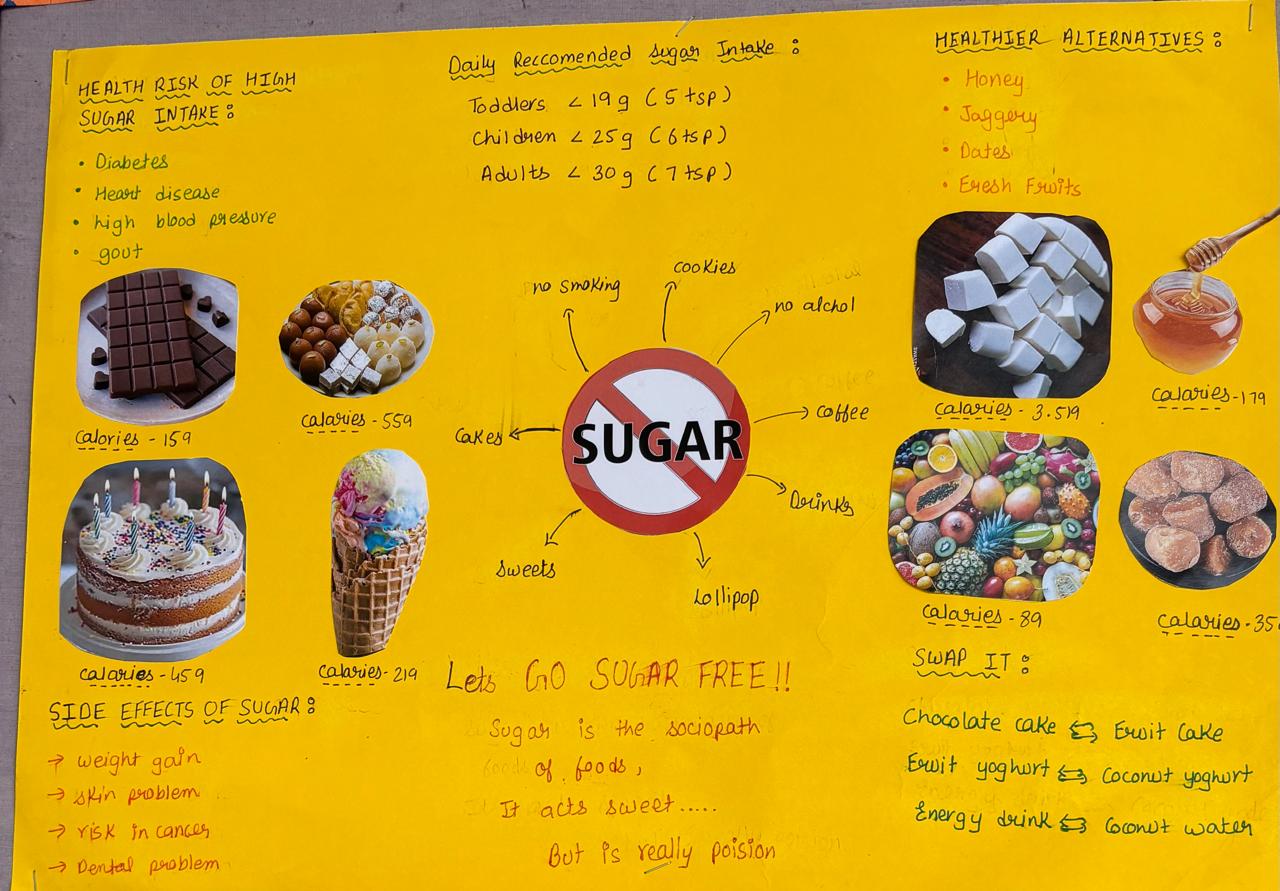 HEALTH RISK OF HIGH
SUGAR INTAKE:
• Diabetes
• Heart disease
• high blood pressure
• gout
Calories - 159
Calaries - 559
calaries - 459
calaries - 219
SIDE EFFECTS OF SUGAR:
→ weight gain
→ skin problem
→ risk in cancer
→ Dental problem
Daily Reccomended sugar Intake:
Toddlers < 19 g (5 tsp)
Children < 25 g (6 tsp)
Adults < 30 g (7 tsp)
no smoking
cookies
no alchol
coffee
Drinks
Lollipop
sweets
Cakes
SUGAR
Lets GO SUGAR FREE!!
Sugar is the sociopath
of foods,
It acts sweet.....
But is really poision
HEALTHIER ALTERNATIVES:
• Honey
• Jaggery
• Dates
• Fresh Fruits
Calaries - 3.519
Calaries - 179
Calaries - 89
Calaries - 35
SWAP IT:
Chocolate cake ⇆ Fruit Cake
Fruit yoghurt ⇆ Coconut yoghurt
Energy drink ⇆ Coconut water